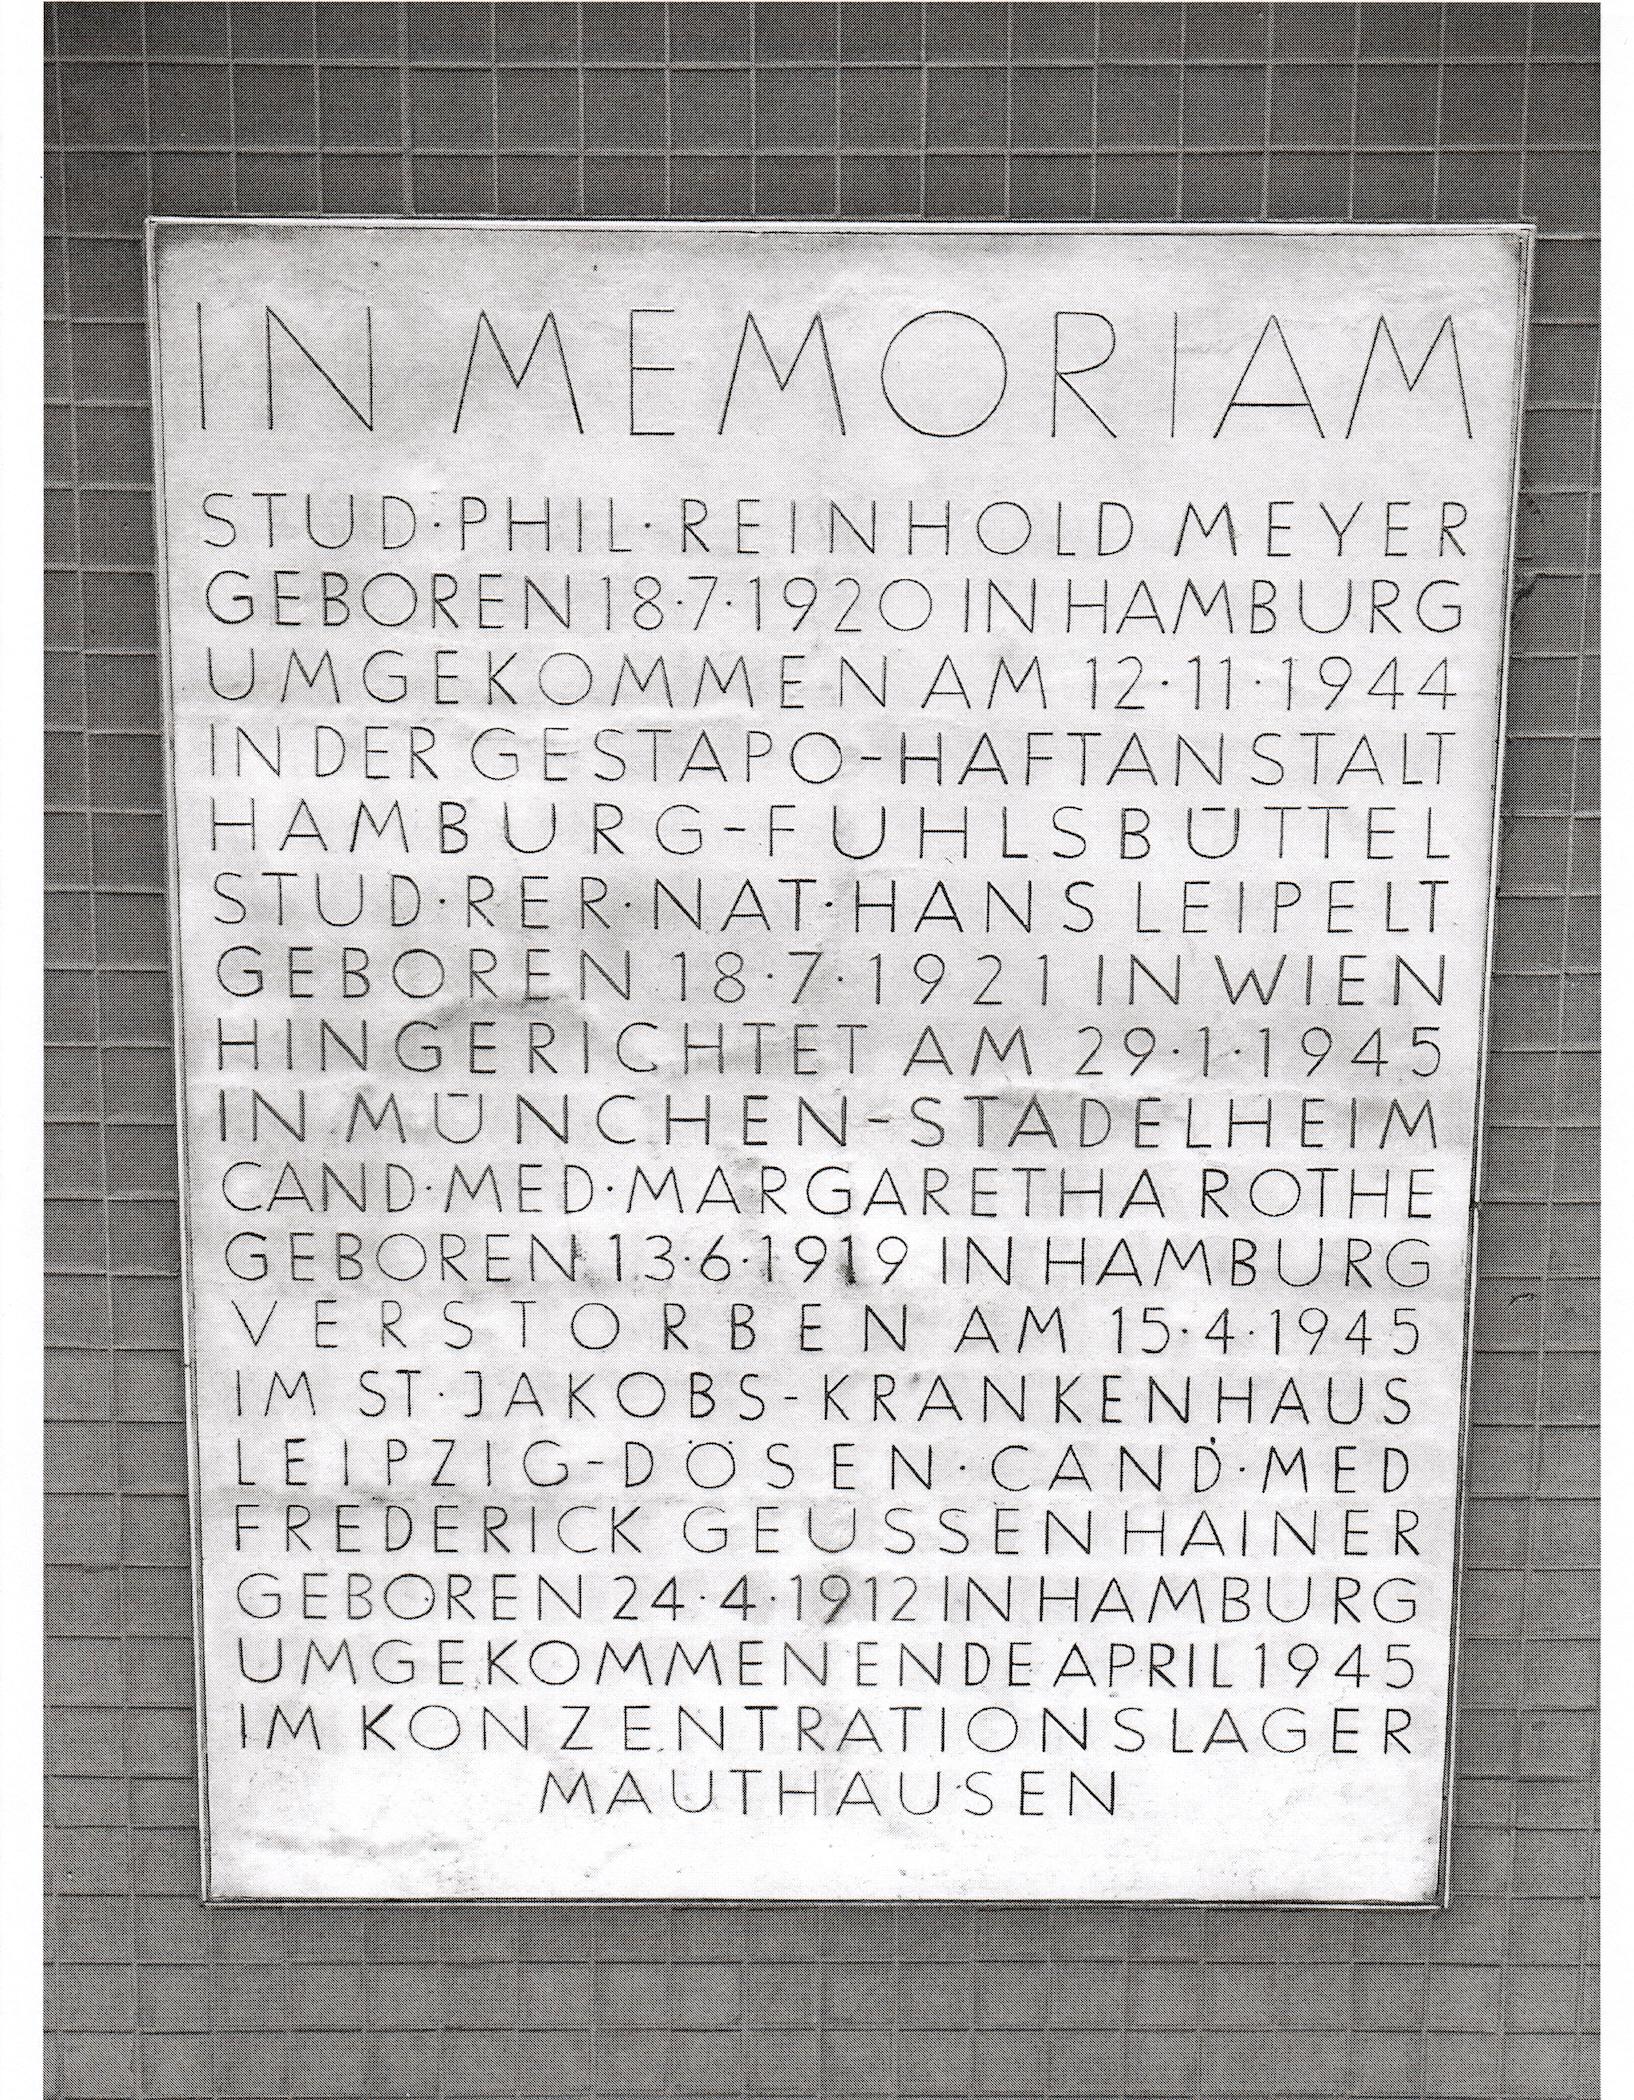 IN MEMORIAM
STUD·PHIL·REINHOLD MEYER
GEBOREN 18·7·1920 IN HAMBURG
UMGEKOMMEN AM 12·11·1944
IN DER GESTAPO-HAFTANSTALT
HAMBURG-FUHLSBÜTTEL
STUD·RER·NAT·HANS LEIPELT
GEBOREN 18·7·1921 IN WIEN
HINGERICHTET AM 29·1·1945
IN MÜNCHEN-STADELHEIM
CAND·MED·MARGARETHA ROTHE
GEBOREN 13·6·1919 IN HAMBURG
VERSTORBEN AM 15·4·1945
IM ST·JAKOBS-KRANKENHAUS
LEIPZIG-DÖSEN·CAND·MED
FREDERICK GEUSSENHAINER
GEBOREN 24·4·1912 IN HAMBURG
UMGEKOMMEN ENDE APRIL 1945
IM KONZENTRATIONSLAGER
MAUTHAUSEN